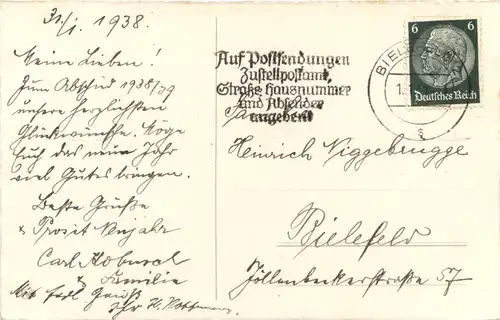 31/1. 1938.
Meine Lieben!
Zum Abschied 1938/39
unsere herzlichsten
Glückwünsche. Möge
Euch das neue Jahr
viel Gutes bringen.
Beste Grüße
& Prosit Neujahr
Carl
& Familie
Mit herzl. Gruß
Ihr H.
Auf Postsendungen
Zustellpostamt,
Straße, Hausnummer
und Absender
angeben!
BIELEFELD
6 6
Deutsches Reich
Heinrich Niggebrügge
Bielefeld
Jöllenbeckerstraße 57